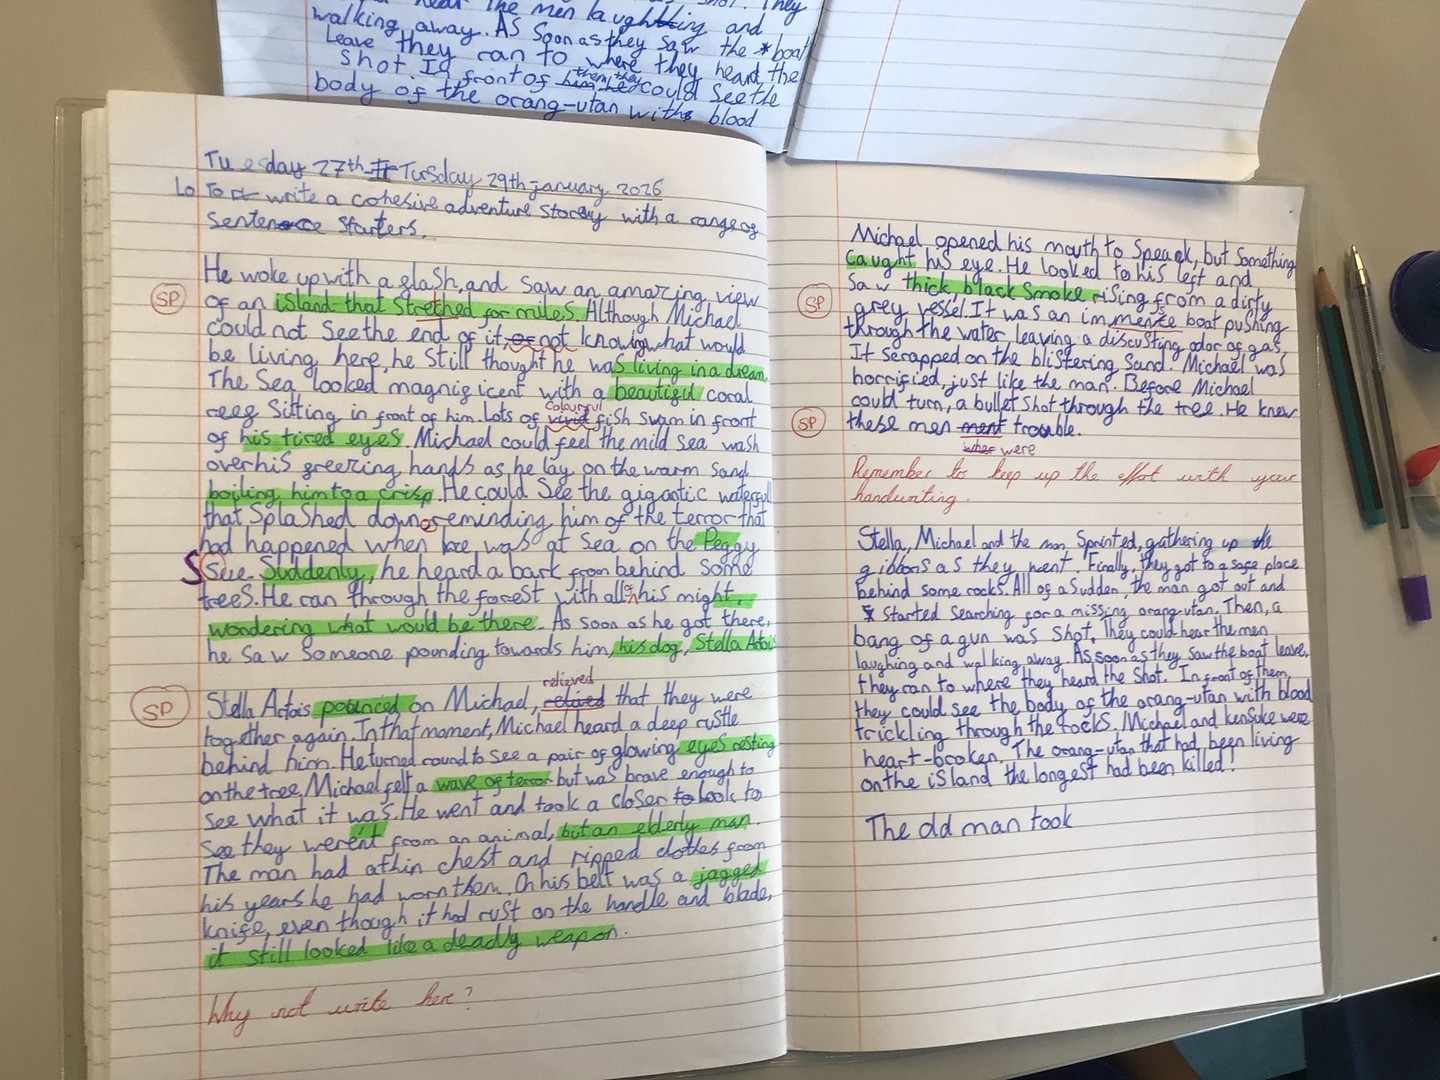 hear the men laughing and
walking away. As soon as they saw the boat
leave they ran to where they heard the
shot. In front of him he them they could see the
body of the orang-utan with blood
Tuesday 27th Tursday 29th january 2026
Lo To write a cohesive adventure storey with a range of
sentence starters.
He woke up with a glash, and saw an amazing view
SP
of an island that strethed for miles. Although Michael
could not see the end of it, or not knowing what would
be living here, he still thought he was living in a dream.
The sea looked magnificent with a beautiful coral
colourful
reef sitting in front of him. Lots of vivid fish swam in front
of his tired eyes. Michael could feel the mild sea wash
over his freezing hands as he lay on the warm sand
boiling him to a crisp. He could see the gigantic waterfall
that splashed down reminding him of the terror that
had happened when he was at sea on the Peggy
S
Sue. Suddenly, he heard a bark from behind some
trees. He ran through the forest with all of his might,
wondering what would be there. As soon as he got there,
he saw someone pounding towards him, his dog, Stella Artois
relieved
SP
Stella Artois pounced on Michael, relived that they were
together again. In that moment, Michael heard a deep rustle
behind him. He turned round to see a pair of glowing eyes resting
on the tree, Michael felt a wave of terror but was brave enough to
see what it was. He went and took a closer to look to
see they weren't from an animal, but an elderly man.
The man had a thin chest and ripped clothes from
his years he had worn them. On his belt was a jagged
knife, even though it had rust on the handle and blade,
it still looked like a deadly weapon.
Why not write here?
Michael, opened his mouth to speack, but something
caught his eye. He looked to his left and
SP
saw thick black smoke rising from a dirty
grey vessel. It was an immence boat pushing
through the water, leaving a discusting odor of gas.
It scrapped on the blistering sand. Michael was
horrified, just like the man. Before Michael
could turn, a bullet shot through the tree. He knew
SP
these men ment trouble.
wher were
Remember to keep up the effot with your
handwriting.
Stella, Michael and the man sprinted, gathering up the
gibbons as they went. Finally, they got to a safe place
behind some rocks. All of a sudden, the man got out and
started searching for a missing orang-utan. Then, a
bang of a gun was shot. They could hear the men
laughing and walking away. As soon as they saw the boat leave,
they ran to where they heard the shot. In front of them,
they could see the body of the orang-utan with blood
trickling through the rocks. Michael and kensuke were
heart-broken. The orang-utan that had been living
on the island the longest had been killed!
The old man took